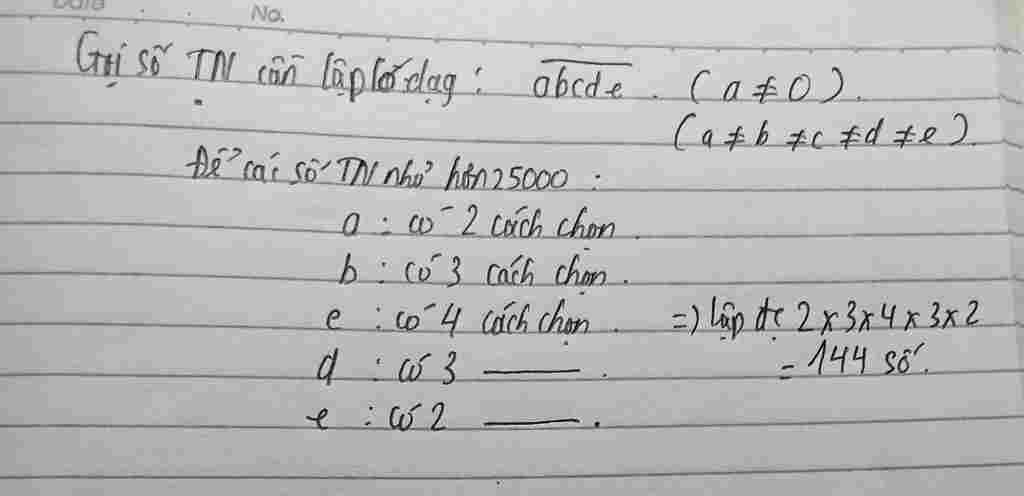 No.
Gọi số TN cần lập có dạg : abcde . (a ≠ 0).
(a ≠ b ≠ c ≠ d ≠ e).
Để các số TN nhỏ hơn 25000 :
a : có 2 cách chọn .
b : có 3 cách chọn .
c : có 4 cách chọn . =) lập đc 2 x 3 x 4 x 3 x 2
d : có 3 —— . = 144 số.
e : có 2 —— .